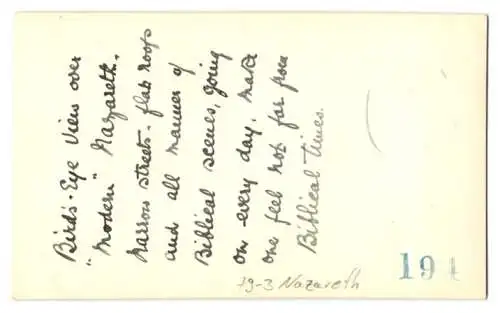 Birds-Eye View over
"Modern" Nazareth.
Narrow streets. flat roofs
and all manner of
Biblical scenes, going
on every day, make
one feel not far from
Biblical times.
79-3 Nazareth
191